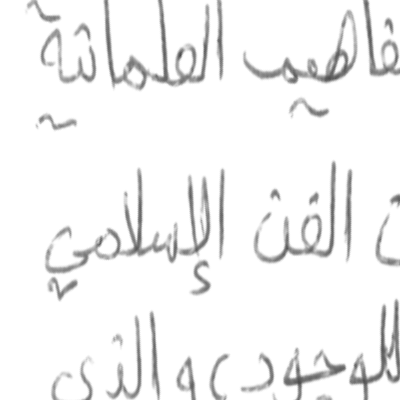 فاهيم العلمانية
الفن الإسلامي
للوجود، والذي